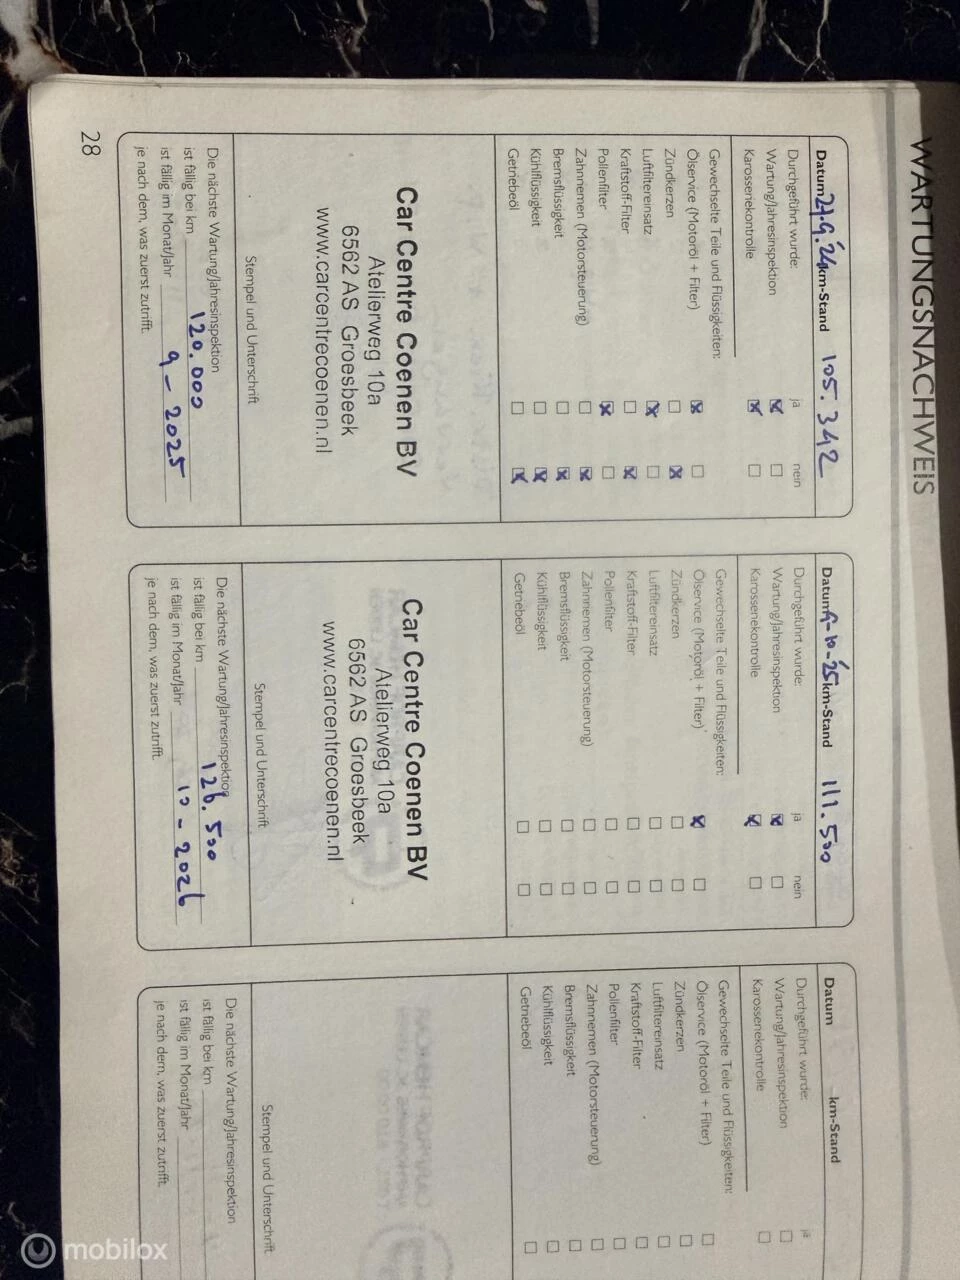 WARTUNGSNACHWEIS
Datum 27-9-'24 km-Stand 105.342
Durchgeführt wurde: ja nein
Wartung/Jahresinspektion ☒ ☐
Karossenekontrolle ☒ ☐
Gewechselte Teile und Flüssigkeiten:
Ölservice (Motoröl + Filter) ☒ ☐
Zündkerzen ☐ ☒
Luftfiltereinsatz ☒ ☐
Kraftstoff-Filter ☐ ☒
Pollenfilter ☒ ☐
Zahnnemen (Motorsteuerung) ☐ ☒
Bremsflüssigkeit ☐ ☒
Kühlflüssigkeit ☐ ☒
Getriebeöl ☐ ☒
Car Centre Coenen BV
Atelierweg 10a
6562 AS Groesbeek
www.carcentrecoenen.nl
Stempel und Unterschrift
Die nächste Wartung/Jahresinspektion
ist fällig bei km 120.000
ist fällig im Monat/Jahr 9-2025
je nach dem, was zuerst zutrifft.
Datum 9-10-'25 km-Stand 111.500
Durchgeführt wurde: ja nein
Wartung/Jahresinspektion ☒ ☐
Karossenekontrolle ☒ ☐
Gewechselte Teile und Flüssigkeiten:
Ölservice (Motoröl + Filter) ☒ ☐
Zündkerzen ☐ ☐
Luftfiltereinsatz ☐ ☐
Kraftstoff-Filter ☐ ☐
Pollenfilter ☐ ☐
Zahnnemen (Motorsteuerung) ☐ ☐
Bremsflüssigkeit ☐ ☐
Kühlflüssigkeit ☐ ☐
Getriebeöl ☐ ☐
Car Centre Coenen BV
Atelierweg 10a
6562 AS Groesbeek
www.carcentrecoenen.nl
Stempel und Unterschrift
Die nächste Wartung/Jahresinspektion
ist fällig bei km 126.500
ist fällig im Monat/Jahr 10-2026
je nach dem, was zuerst zutrifft.
Datum km-Stand
Durchgeführt wurde: ja
Wartung/Jahresinspektion ☐
Karossenekontrolle ☐
Gewechselte Teile und Flüssigkeiten:
Ölservice (Motoröl + Filter) ☐
Zündkerzen ☐
Luftfiltereinsatz ☐
Kraftstoff-Filter ☐
Pollenfilter ☐
Zahnnemen (Motorsteuerung) ☐
Bremsflüssigkeit ☐
Kühlflüssigkeit ☐
Getriebeöl ☐
Stempel und Unterschrift
Die nächste Wartung/Jahresinspektion
ist fällig bei km
ist fällig im Monat/Jahr
je nach dem, was zuerst zutrifft.
28
mobilox